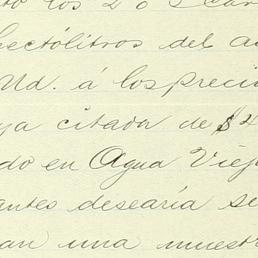 los 2 ó 3
hectólitros del
Ud. á los preci
ya citada de $4
do en Agua Viej
antes desearía se
an una muest